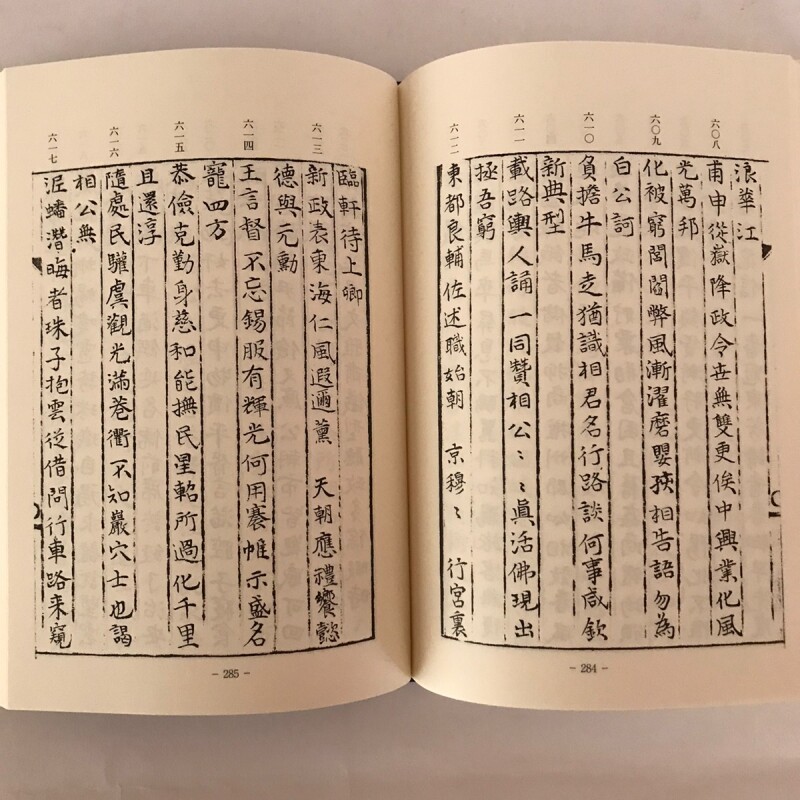 六〇八
六〇九
六一〇
六一一
六一二
浪華江
甫申從嶽降政令世無雙更俟中興業化風
光萬邦
化被窮閭閻弊風漸濯磨嬰孩相告語勿為
白公訶
負擔牛馬走猶識相君名行路談何事咸欽
新典型
載路輿人誦一同贊相公〻〻眞活佛現出
拯吾窮
東都良輔佐述職始朝 京穆〻 行宮裏
- 284 -
六一三
六一四
六一五
六一六
六一七
臨軒待上卿
新政表東海仁風遐邇薰 天朝應禮饗懿
德與元勳
王言督不忘錫服有輝光何用褰帷示盛名
寵四方
恭儉克勤身慈和能撫民星軺所過化千里
且還淳
隨處民驩虞觀光滿巷衢不知巖穴士也謁
相公無
泥蟠潛晦者珠子抱雲從借問行車路来窺
- 285 -